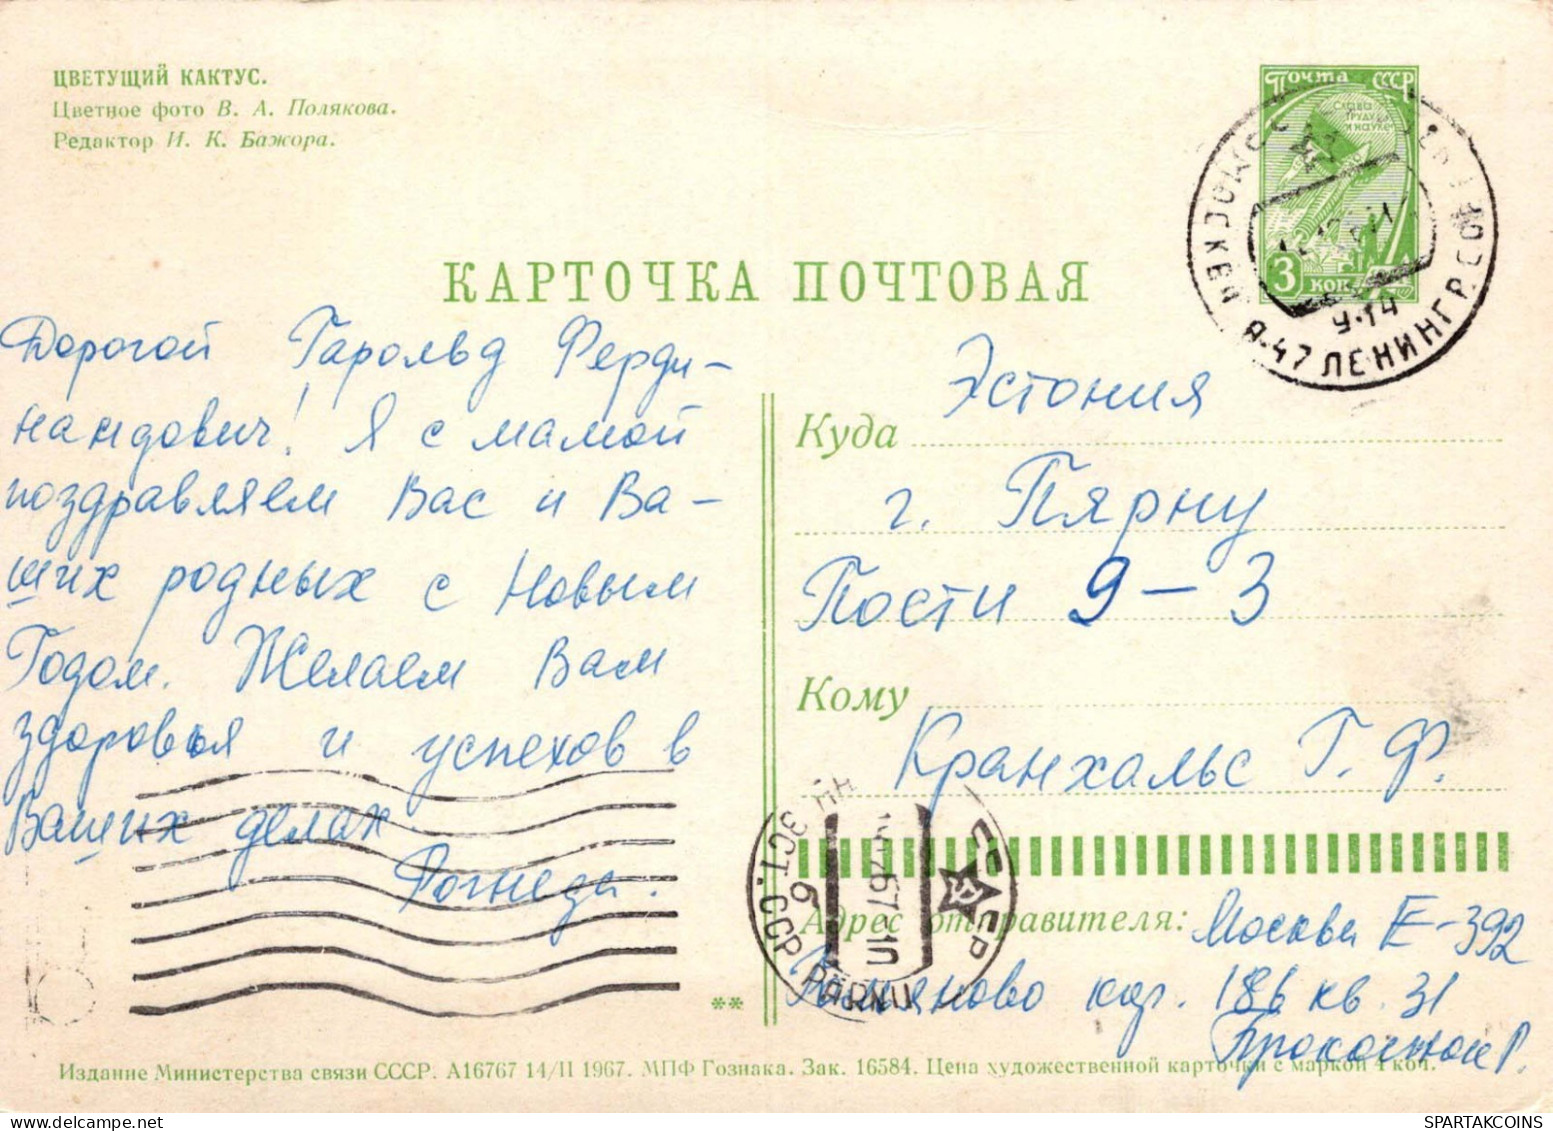 ЦВЕТУЩИЙ КАКТУС.
Цветное фото В. А. Полякова.
Редактор И. К. Бажора.
Почта СССР
СЛАВА
ТРУДУ
И НАУКЕ
3 КОП
9-14
А-47 ЛЕНИНГР.
КАРТОЧКА ПОЧТОВАЯ
Дорогой Гарольд Ферди-
нандович! Я с мамой
поздравляем Вас и Ва-
ших родных с Новым
Годом. Желаем Вам
здоровья и успехов в
Ваших делах.
Рогнеда.
Эстония
Куда
г. Пярну
Пости 9-3
Кому
Кранхальс Г. Ф.
СССР
ЭСТ. ССР PÄRNU
6
67 10
Адрес отправителя: Москва Е-392
кор. 186 кв. 31
**
Издание Министерства связи СССР. А16767 14/II 1967. МПФ Гознака. Зак. 16584. Цена художественной карточки с маркой 4 коп.
SPARTAKCOINS